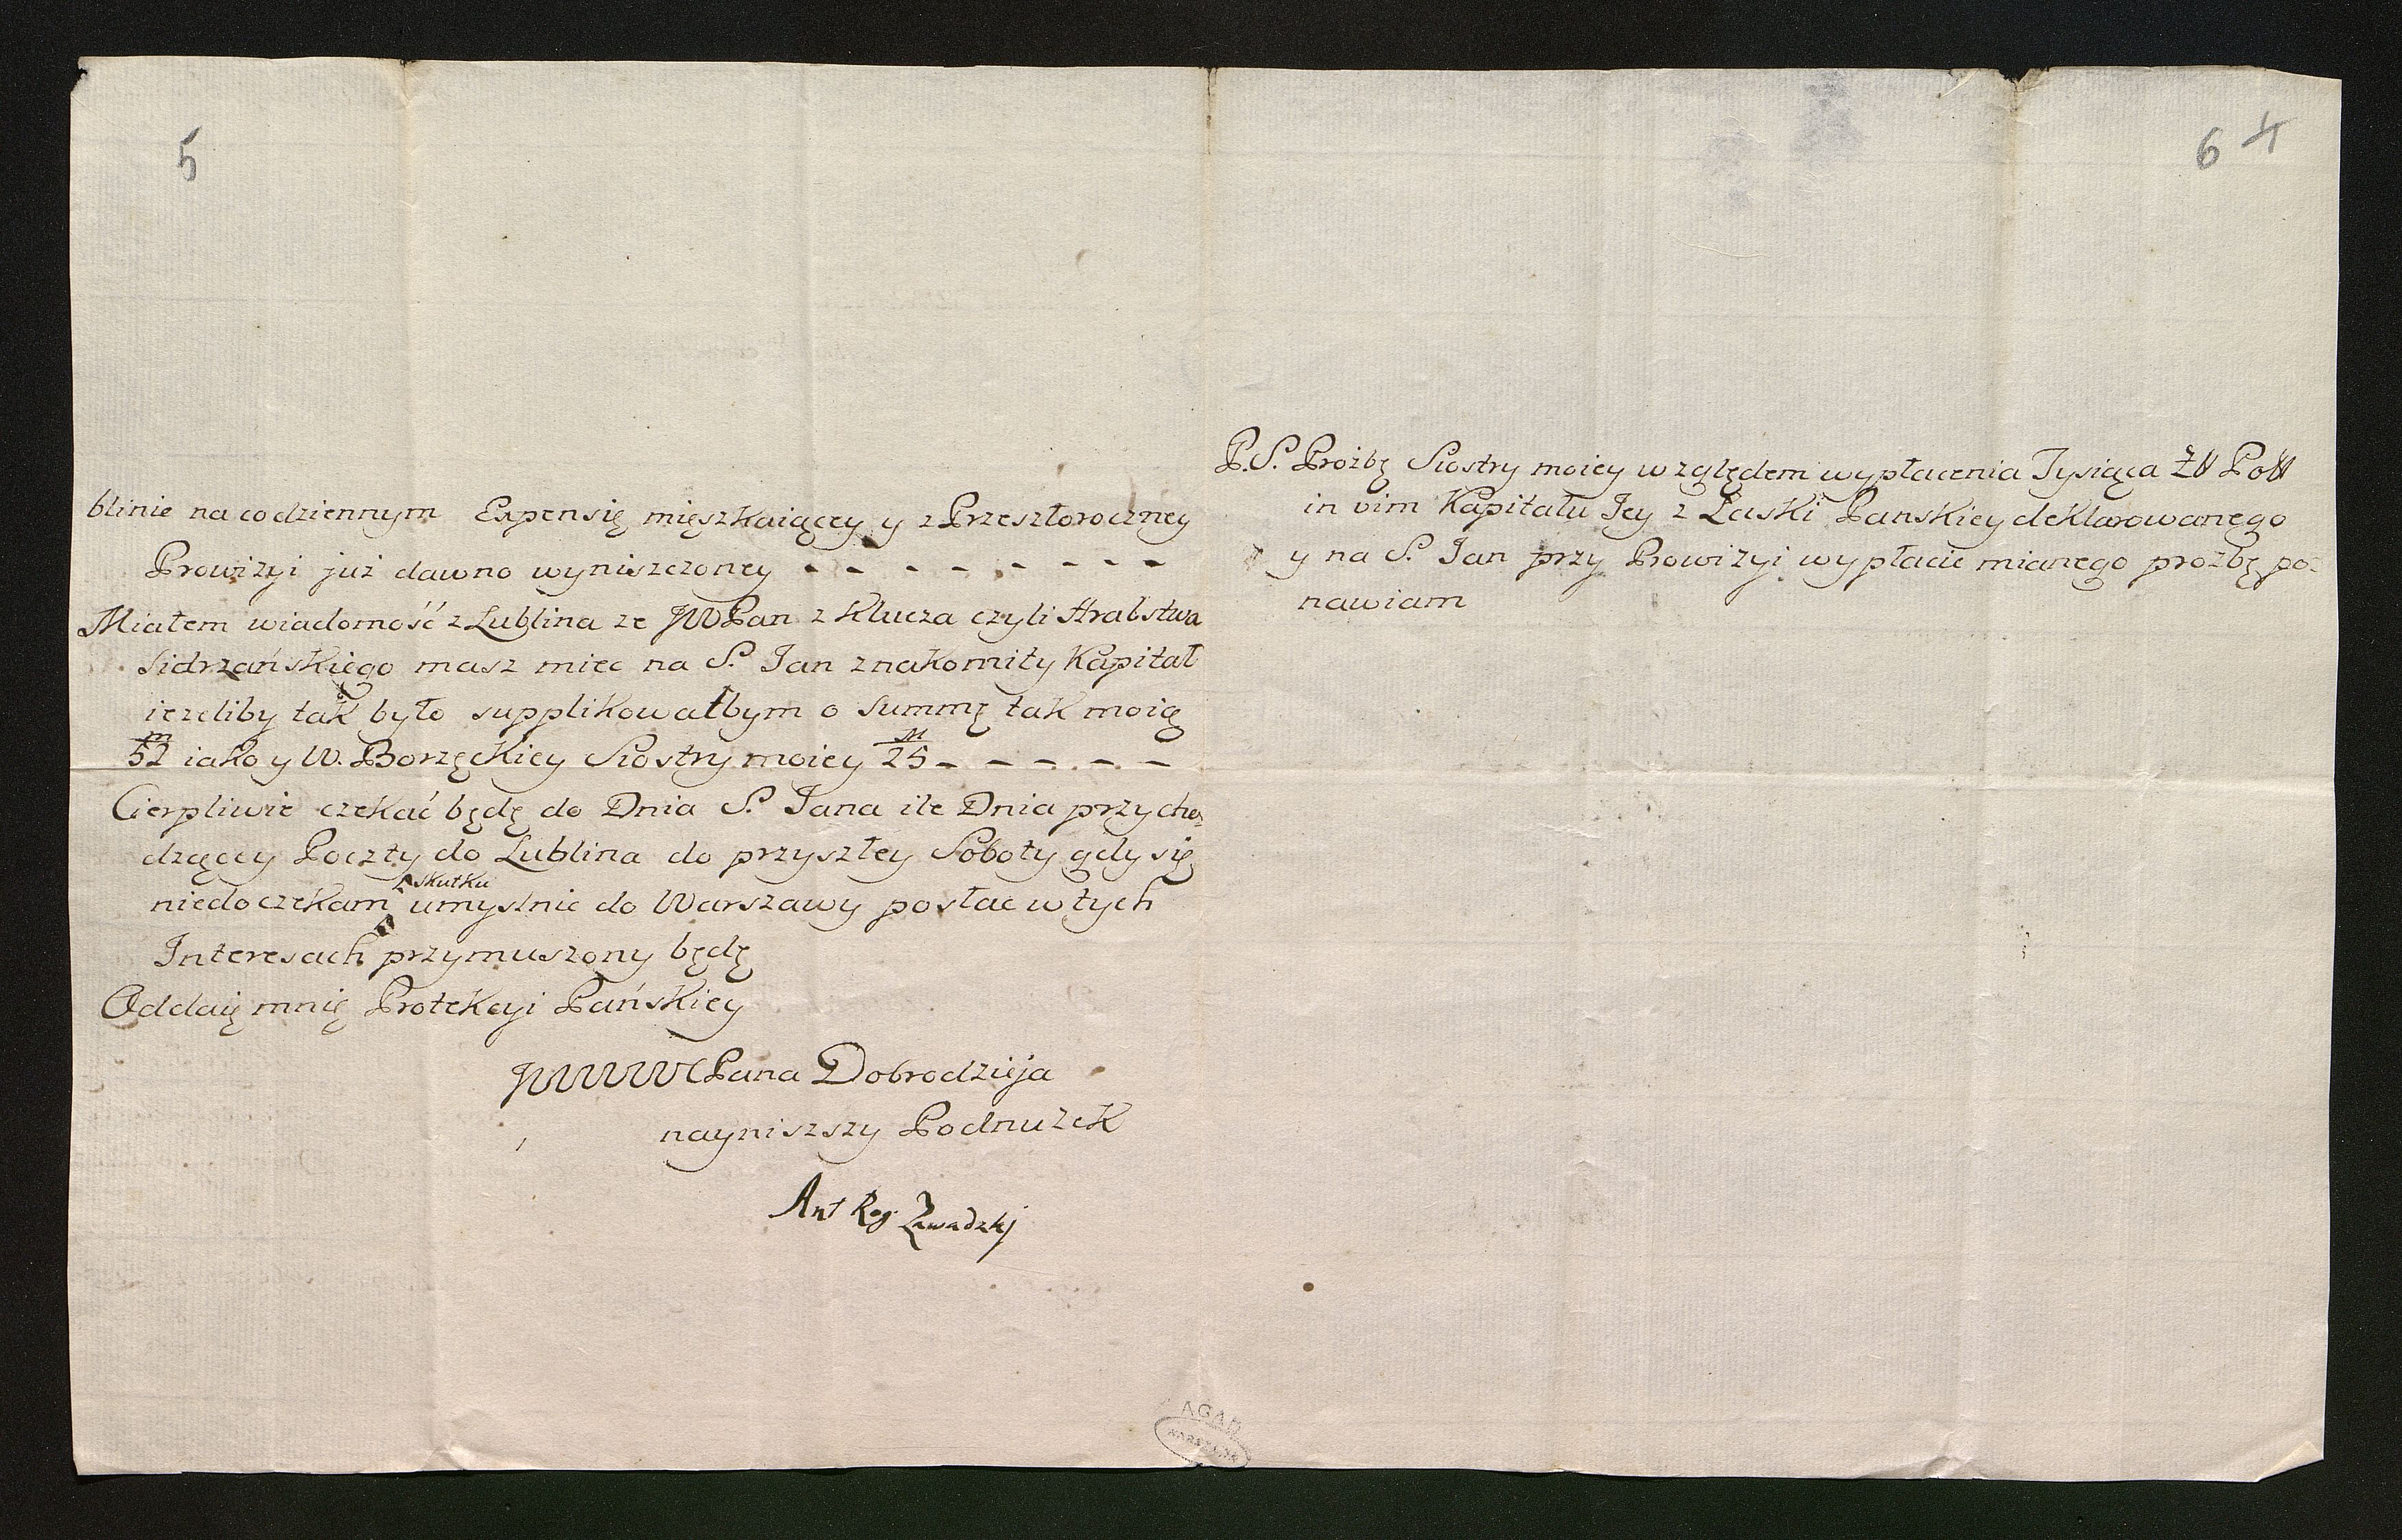 5
blinie na codziennym Expensię mięszkaiącey y z Przeszłoroczney
Prowizyi już dawno wyniszczoney - - - - - - - -
Miałem wiadomość z Lublina ze JWPan z Klucza czyli Hrabstwa
Sidrzańskięgo masz miec na S. Jan znakomity Kapitał
iezeliby tak było supplikowałbym o Summę tak moię
52 m iako y W. Borzęckiey Siostry moiey 25 M - - - - - -
Cierpliwie czekać będę do Dnia S. Jana ile Dnia przycho-
dzącey Poczty do Lublina do przyszłey Soboty gdy się
niedoczekam skutku umyslnie do Warszawy posłac w tych
Interesach przymuszony będę
Oddaię mnię Protekcyi Pańskiey
Pana Dobrodzieja
nayniszszy Podnuzek
Ant Rog Zawadzkj
6 4
P.S. Prozbę Siostry moiey względem wypłacenia Tysiąca Złł Poll
in vim Kapitału Jey z Łaski Panskiey deklarowanego
y na S. Jan przy Prowizyi wypłacie mianego prozbę po-
nawiam
AGAD
WARSZAWA